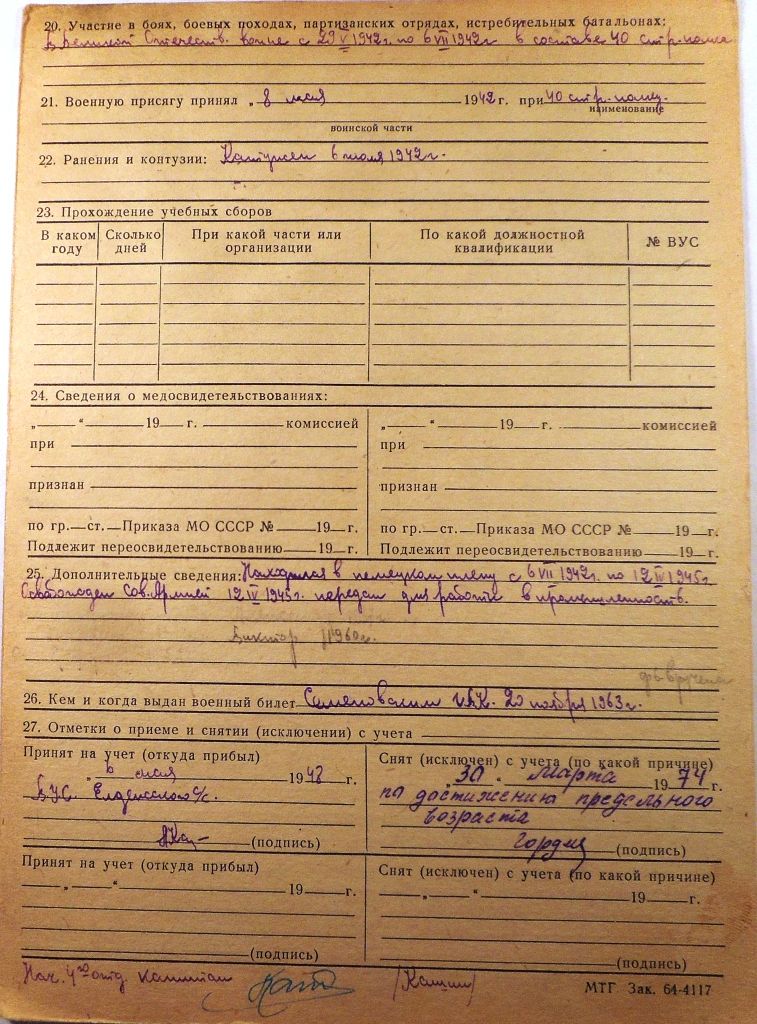 20. Участие в боях, боевых походах, партизанских отрядах, истребительных батальонах:
В Великой Отечеств. войне с 29 V 1942г. по 6 VII 1942г в составе 40 стр. полка
21. Военную присягу принял „ 8 мая 1942 г. при 40 стр. полку.
наименование
воинской части
22. Ранения и контузии: Контужен 6 июля 1942г.
23. Прохождение учебных сборов
В каком году Сколько дней При какой части или организации По какой должностной квалификации № ВУС
24. Сведения о медосвидетельствованиях:
„ “ 19 г. комиссией „ “ 19 г. комиссией
при при
признан признан
по гр. ст. Приказа МО СССР № 19 г. по гр. ст. Приказа МО СССР № 19 г.
Подлежит переосвидетельствованию 19 г. Подлежит переосвидетельствованию 19 г.
25. Дополнительные сведения: Находился в немецком плену с 6 VII 1942г. по 12 IV 1945г.
Освобожден Сов. Армией 12 IV 1945г. передан для работы в промышленность.
Виктор 1960г.
вручена
26. Кем и когда выдан военный билет Семеновским 20 ноября 1963г.
27. Отметки о приеме и снятии (исключении) с учета
Принят на учет (откуда прибыл)
„ 6 мая 1948 г.
ВУС с/с.
(подпись)
Снят (исключен) с учета (по какой причине)
„ 30 “ Марта 1974 г.
по достижению предельного
возраста
(подпись)
Принят на учет (откуда прибыл)
„ “ 19 г.
(подпись)
Снят (исключен) с учета (по какой причине)
„ “ 19 г.
(подпись)
Нач. 4го отд. капитан /Кашин/
МТГ. Зак. 64-4117